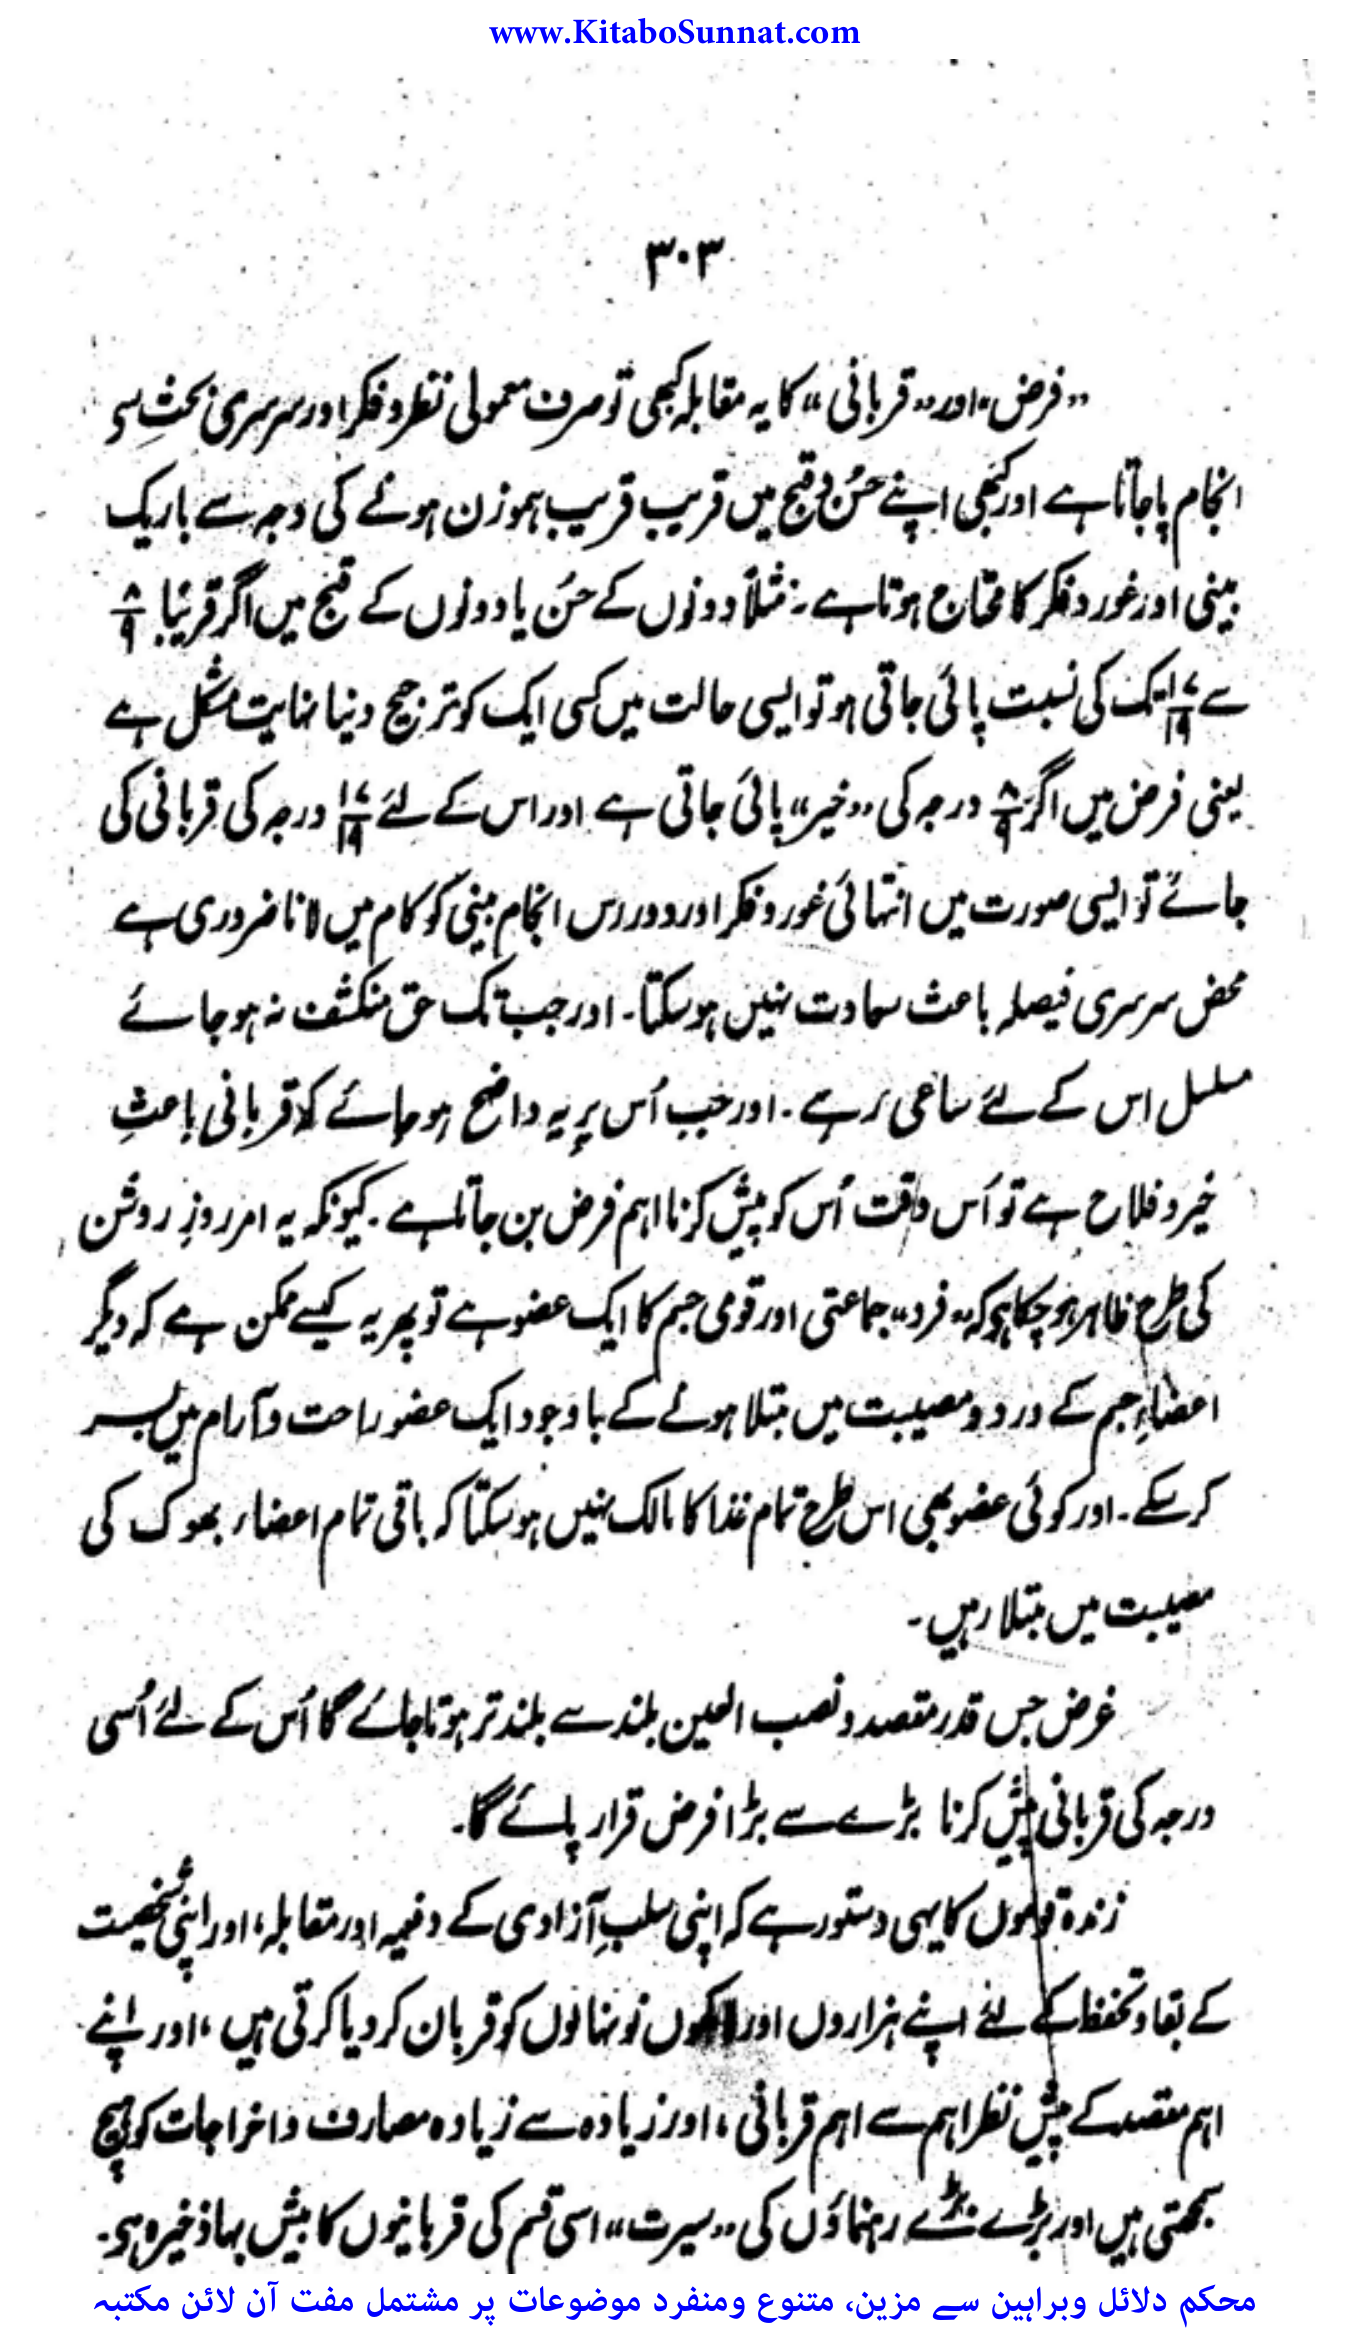 www.KitaboSunnat.com
۳۰۳
"فرض" اور "قربانی" کا یہ مقابلہ کبھی تو صرف معمولی نظر و فکر اور سرسری بحث سے
انجام پا جاتا ہے اور کبھی اپنے حُسن و قبح میں قریب قریب ہموزن ہونے کی وجہ سے باریک
بینی اور غور و فکر کا محتاج ہوتا ہے۔ مثلاً دونوں کے حُسن یا دونوں کے قبح میں اگر قریبًا ۸/۹
سے ۱۷/۱۹ تک کی نسبت پائی جاتی ہو تو ایسی حالت میں کسی ایک کو ترجیح دینا نہایت مشکل ہے
یعنی فرض میں اگر ۸/۹ درجہ کی "خیر" پائی جاتی ہے اور اس کے لئے ۱۷/۱۹ درجہ کی قربانی کی
جائے تو ایسی صورت میں انتہائی غور و فکر اور دور رس انجام بینی کو کام میں لانا ضروری ہے
محض سرسری فیصلہ باعث سعادت نہیں ہو سکتا۔ اور جب تک حق منکشف نہ ہو جائے
مسلسل اس کے لئے ساعی رہے۔ اور جب اُس پر یہ واضح ہو جائے کہ قربانی باعثِ
خیر و فلاح ہے تو اُس وقت اُس کو پیش کرنا اہم فرض بن جاتا ہے۔ کیونکہ یہ امر روزِ روشن
کی طرح ظاہر ہو چکا ہو کہ "فرد" جماعتی اور قومی جسم کا ایک عضو ہے تو پھر یہ کیسے ممکن ہے کہ دیگر
اعضاءِ جسم کے درد و مصیبت میں مبتلا ہونے کے باوجود ایک عضو راحت و آرام میں بسر
کر سکے۔ اور کوئی عضو بھی اس طرح تمام غذا کا مالک نہیں ہو سکتا کہ باقی تمام اعضاء بھوک کی
مصیبت میں مبتلا رہیں۔
غرض جس قدر مقصد و نصب العین بلند سے بلند تر ہوتا جائے گا اُس کے لئے اُسی
درجہ کی قربانی پیش کرنا بڑے سے بڑا فرض قرار پائے گا۔
زندہ قوموں کا یہی دستور ہے کہ اپنی سلبِ آزادی کے دفعیہ اور مقابلہ، اور اپنی شخصیت
کے بقاء و تحفظ کے لئے اپنے ہزاروں اور لاکھوں نونہالوں کو قربان کر دیا کرتی ہیں، اور اپنے
اہم مقصد کے پیش نظر اہم سے اہم قربانی، اور زیادہ سے زیادہ مصارف و اخراجات کو ہیچ
سمجھتی ہیں اور بڑے بڑے رہنماؤں کی "سیرت" اسی قسم کی قربانیوں کا بیش بہا ذخیرہ ہی۔
محکم دلائل وبراہین سے مزین، متنوع ومنفرد موضوعات پر مشتمل مفت آن لائن مکتبہ